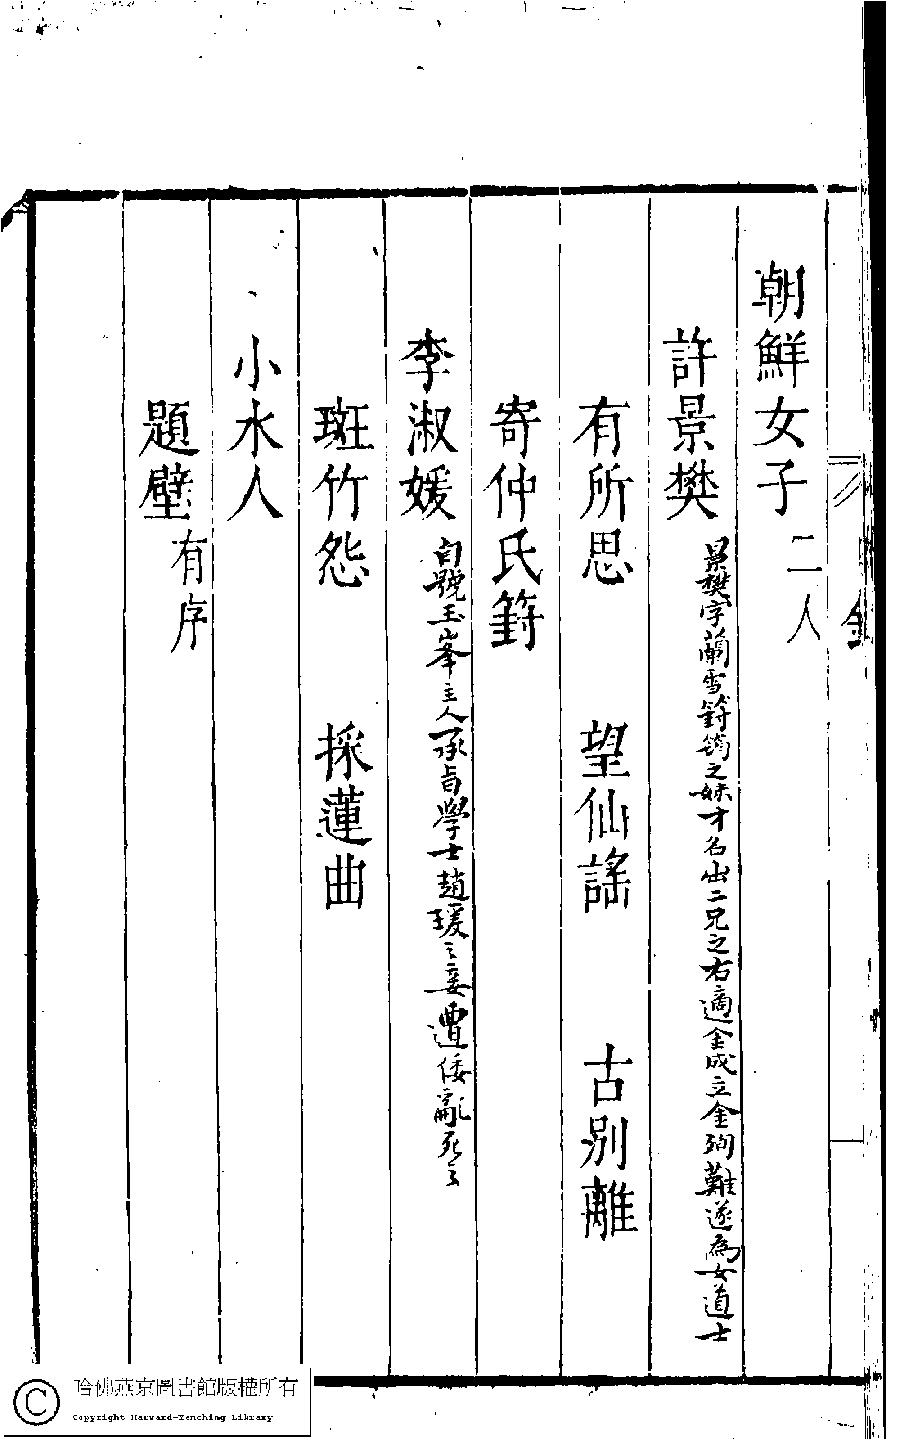 朝鮮女子二人
許景樊景樊字蘭雪篈筠之妹才名出二兄之右適金成立金殉難遂為女道士
有所思 望仙謠 古別離
寄仲氏篈
李淑媛自號玉峯主人承旨學士趙瑗之妾遭倭亂死之
斑竹怨 採蓮曲
小水人
題壁有序
哈佛燕京圖書館版權所有
Copyright Harvard-Yenching Library